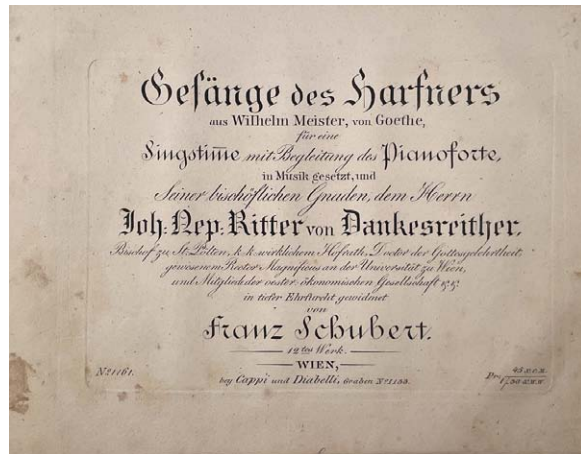 Gesänge des Harfners
aus Wilhelm Meister, von Goethe,
für eine
Singstim̄e mit Begleitung des Pianoforte,
in Musik gesetzt, und
Seiner bischöflichen Gnaden, dem Herrn
Joh: Nep: Ritter von Dankesreither,
Bischof zu St. Pölten, k. k. wirklichem Hofrath, Doctor der Gottesgelehrtheit,
gewesenem Rector Magnificus an der Universität zu Wien,
und Mitglied der oester. ökonomischen Gesellschaft
in tiefer Ehrfurcht gewidmet
von
Franz Schubert.
12tes Werk.
WIEN,
bey Cappi und Diabelli, Graben No. 1133.
No. 1161.
Pr: